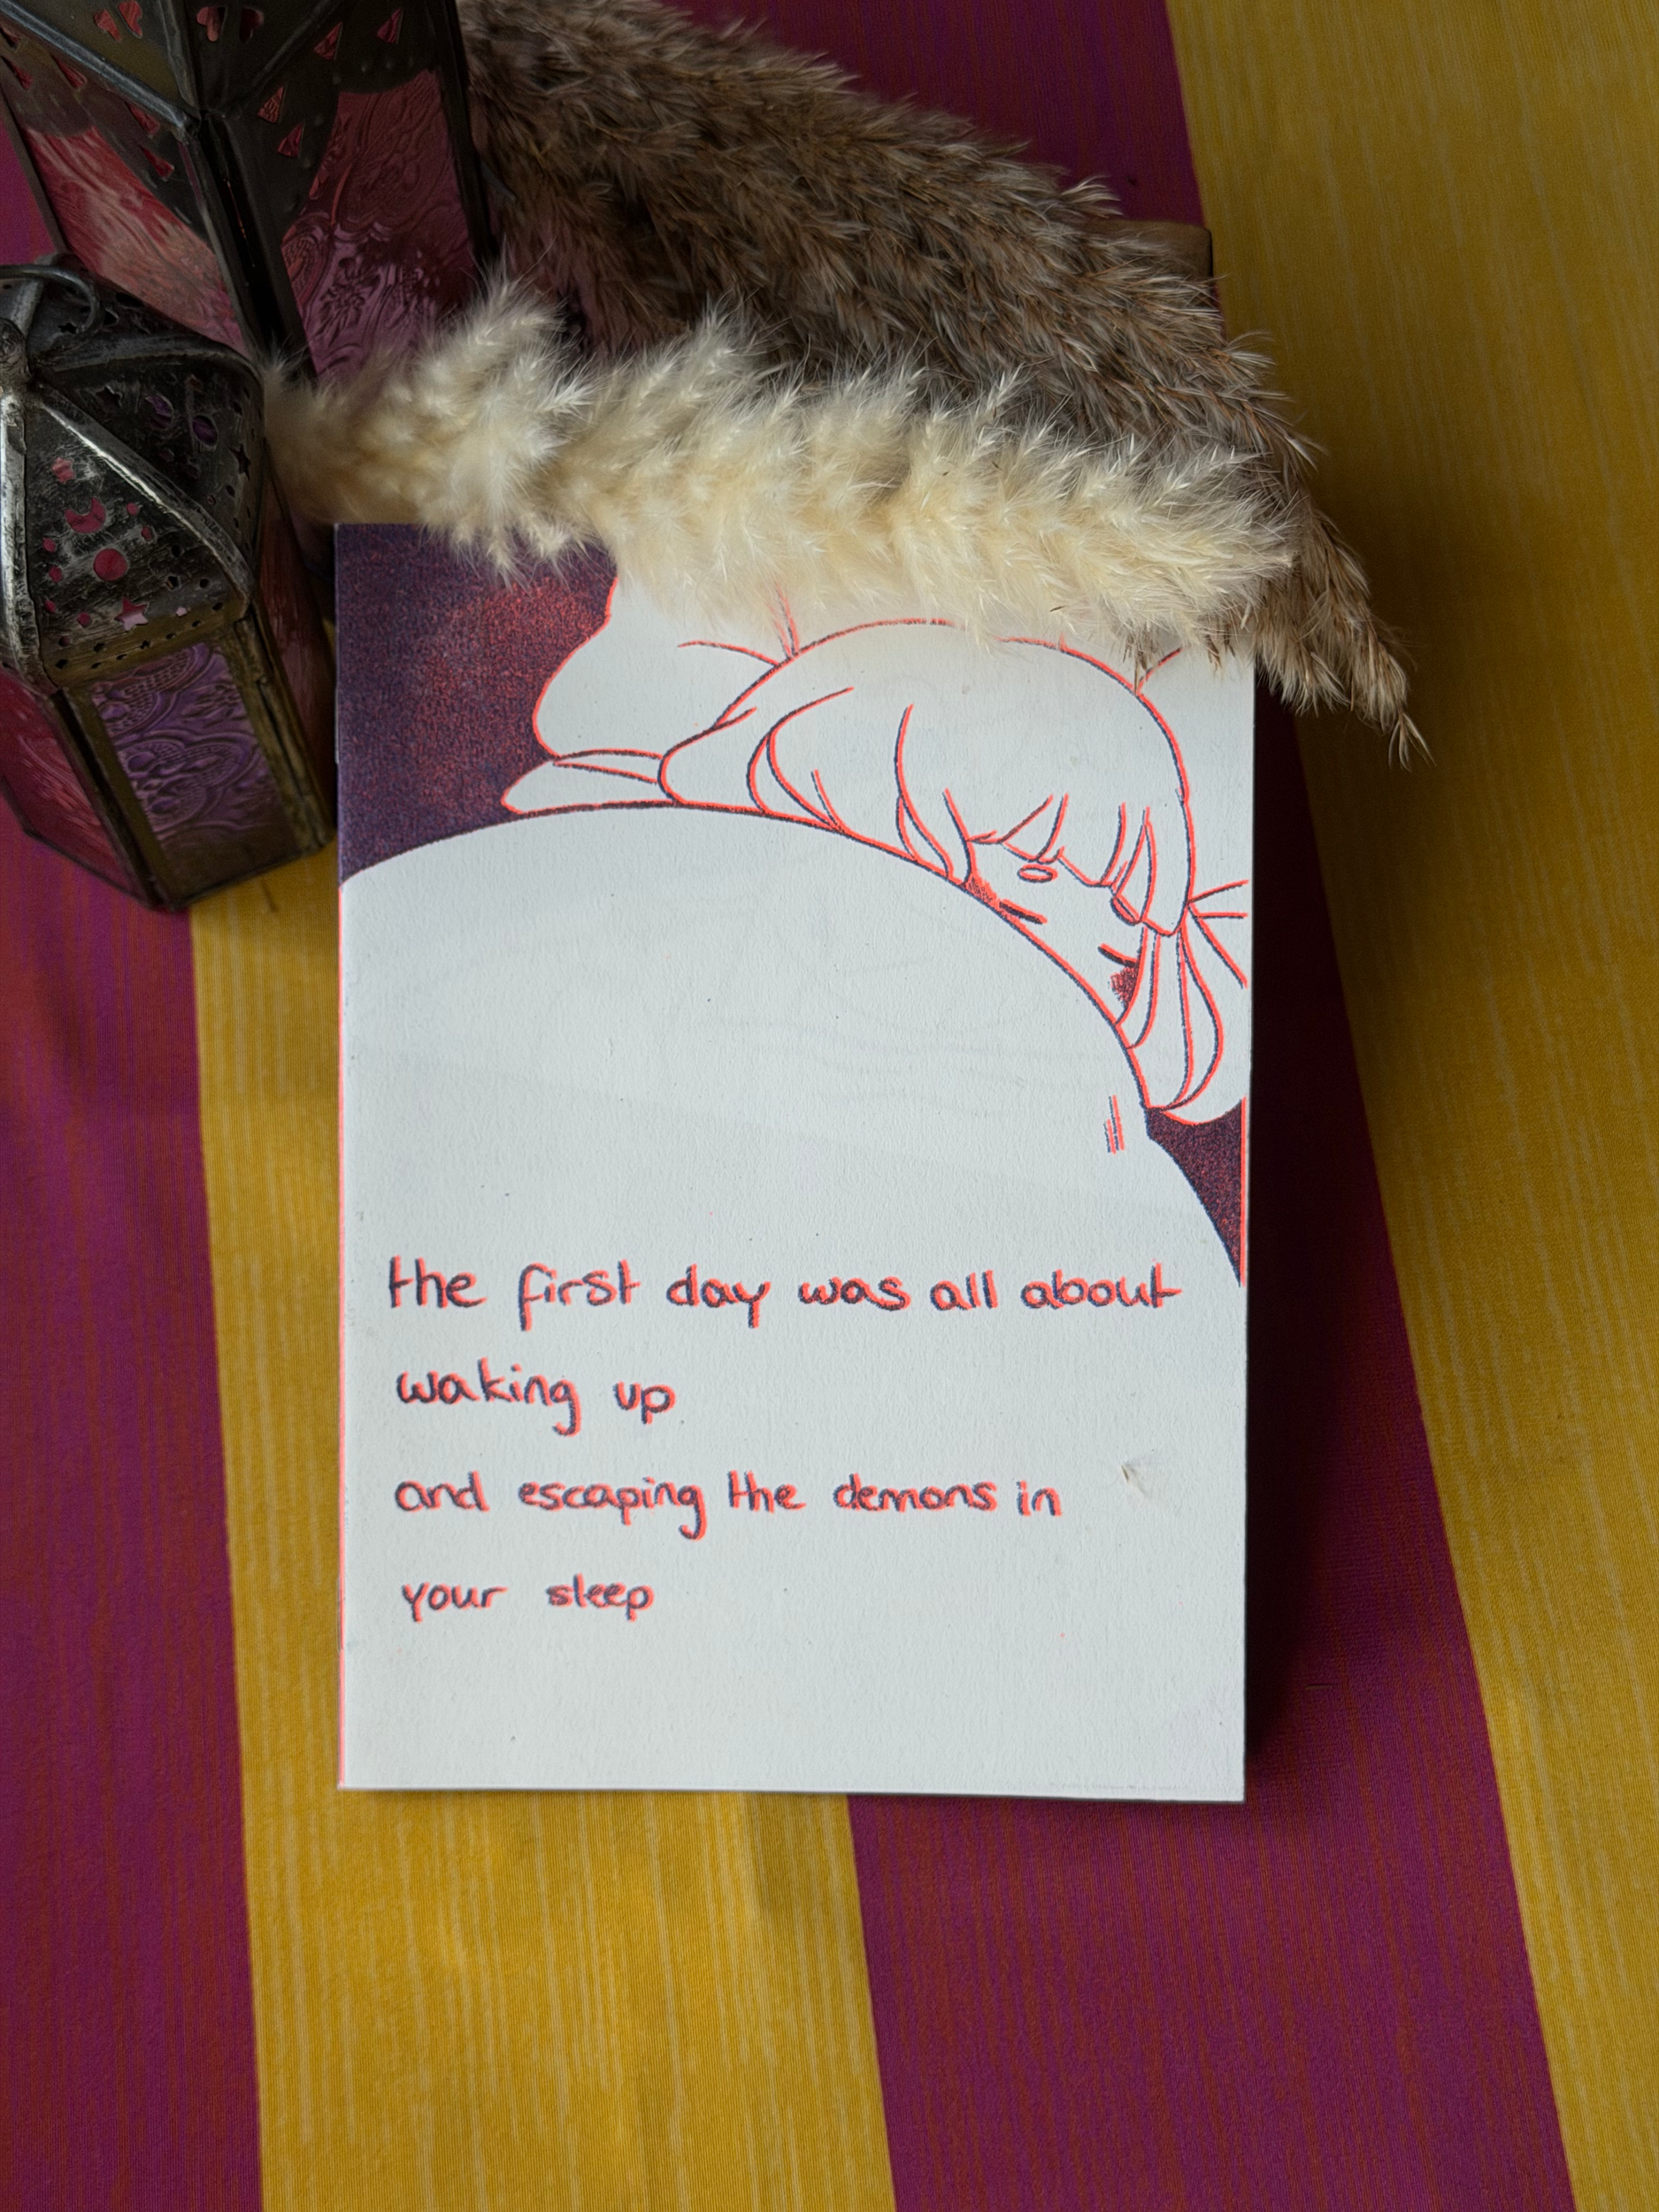 the first day was all about
waking up
and escaping the demons in
your sleep